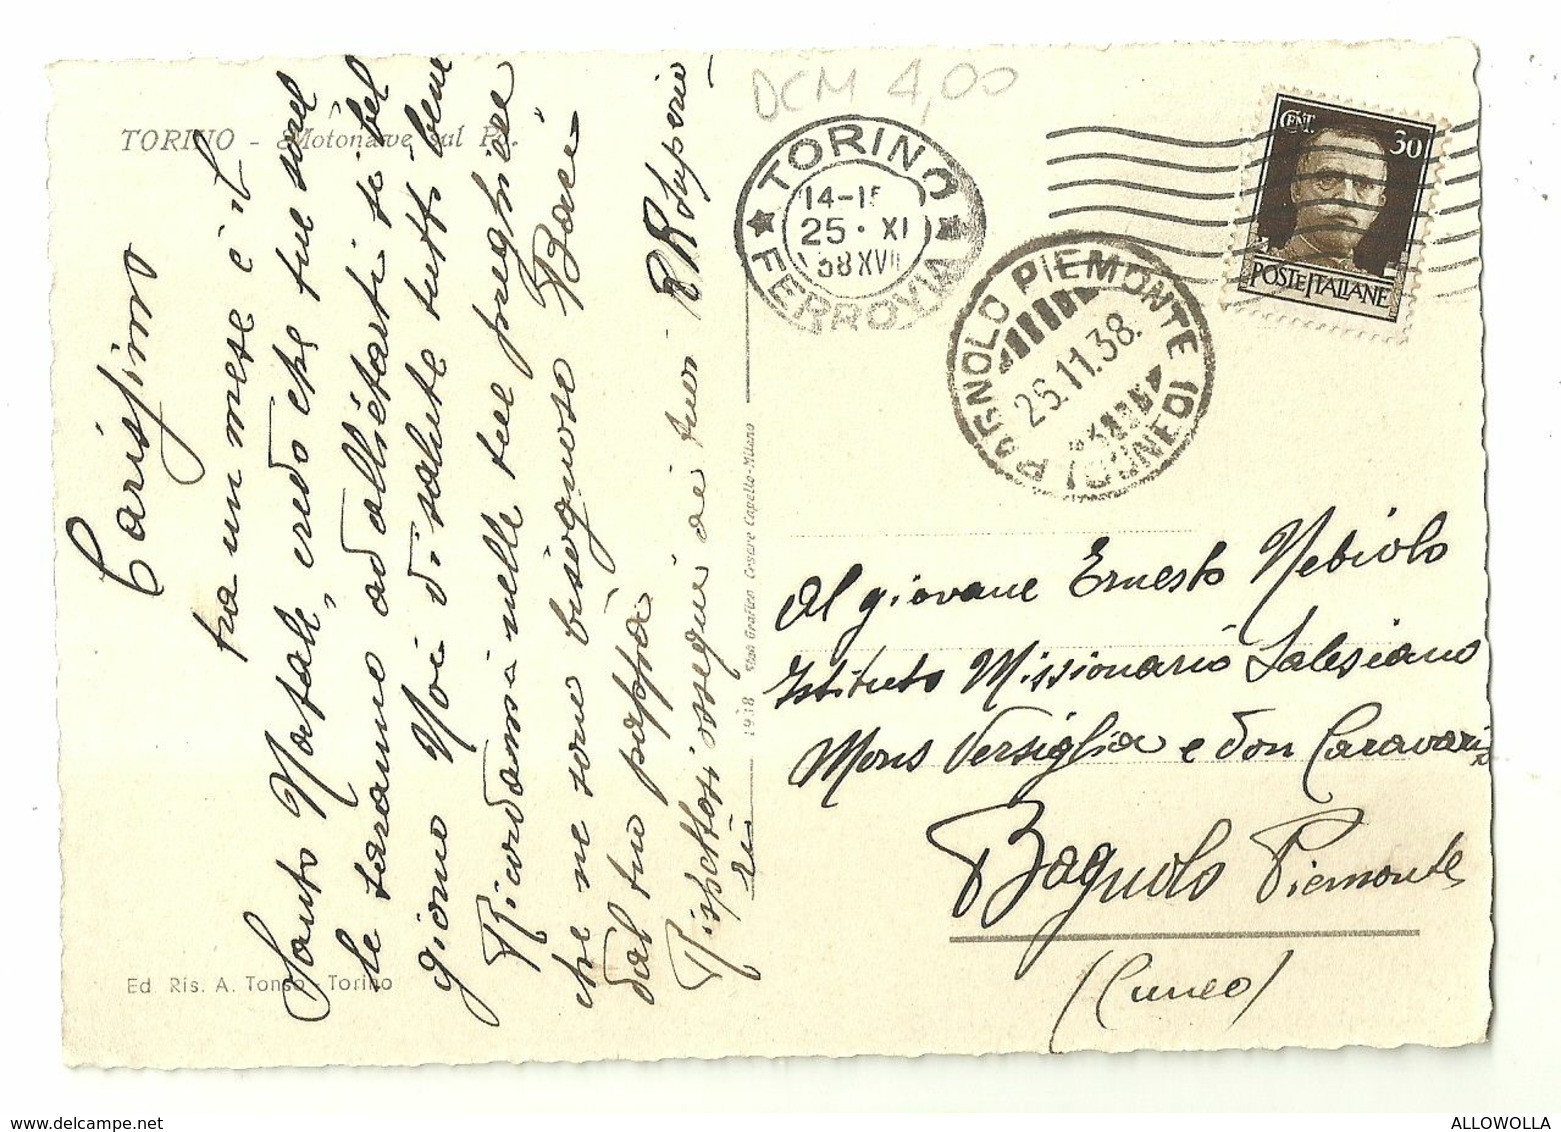 DCM 4,00
TORINO - Motonave sul Po.
TORINO
14-15
25 · XI
38 XVII
FERROVIA
CENT. 30
POSTE ITALIANE
BAGNOLO PIEMONTE
26.11.38.
(CUNEO)
Carissimo
fra un mese è il
Santo Natale, credo che tue sorel
le faranno ad allietarti sì bel
giorno Noi di salute tutti bene
Ricordami nelle tue preghiere
che ne sono bisognose Baci
dal tuo pappà
Rispettosi ossequi ai tuoi RR Superio
ri
1938 Stab Grafico Cesare Capello-Milano
Al giovane Ernesto Nebiolo
Istituto Missionario Salesiano
Mons Versiglia e don Caravario
Bagnolo Piemonte
(Cuneo)
Ed. Ris. A. Tonso - Torino
ALLOWOLLA